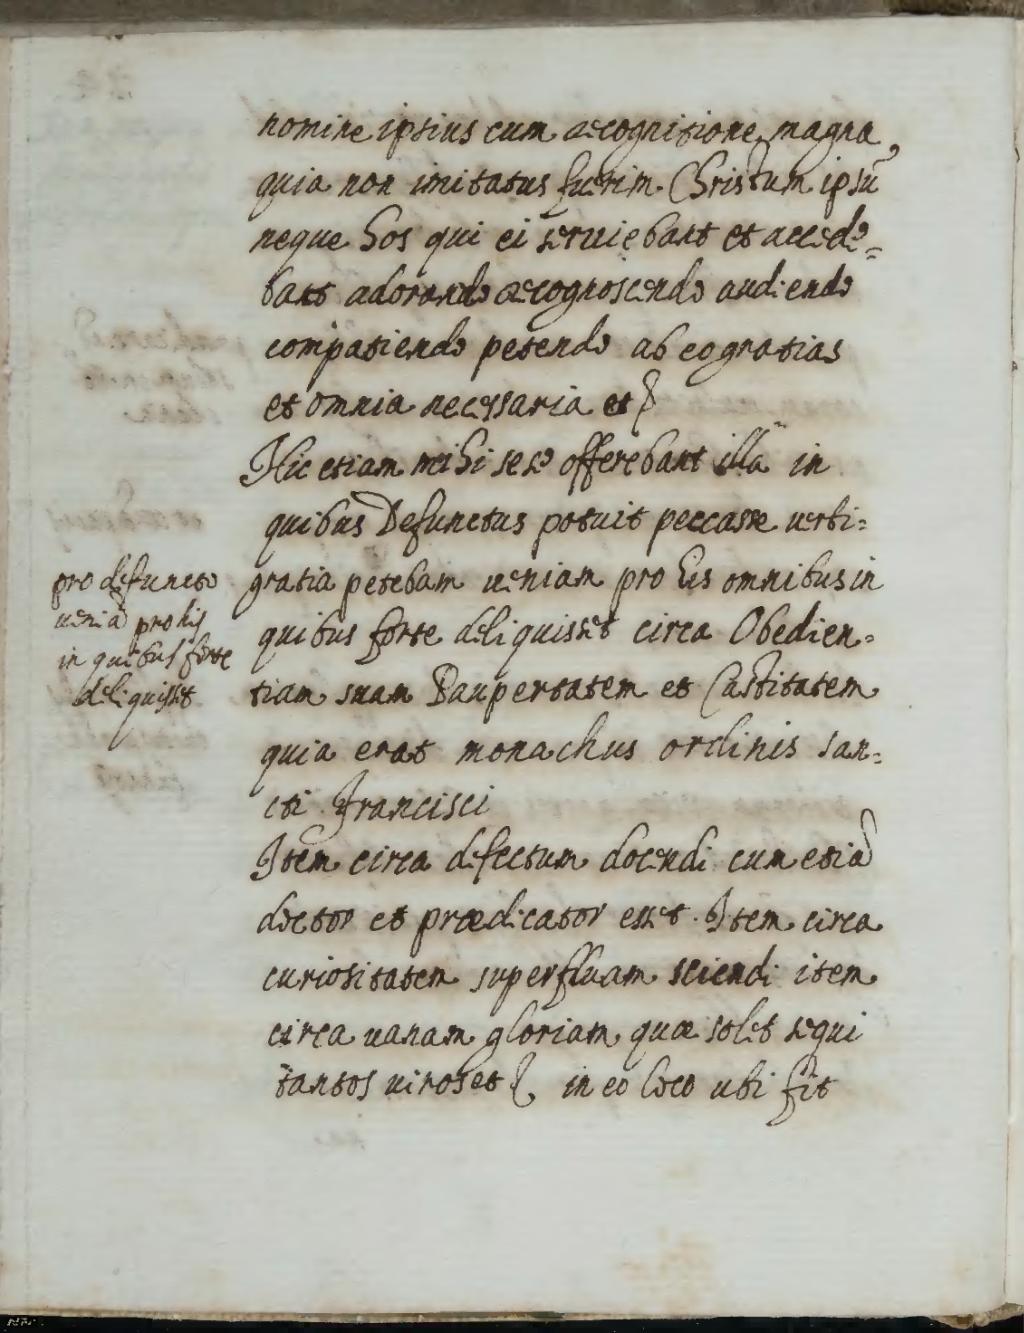 nomine ipsius cum recognitione magna,
quia non imitatus fuerim Christum ipsū
neque hos qui ei serviebant et accede=
bant adorando recognoscendo audiendo
compatiendo petendo ab eo gratias
et omnia necessaria et
Hic etiam mihi sese offerebant illa in
quibus Defunctus potuit peccasse verbi=
gratia petebam veniam pro his omnibus in
quibus forte deliquisset circa Obedien=
tiam suam Paupertatem et Castitatem
quia erat monachus ordinis San=
cti Francisci
Item circa defectum docendi cum etiā
doctor et prædicator esset. Item circa
curiositatem superfluam sciendi item
circa uanam gloriam quæ solet sequi
tantos uiros et in eo loco ubi fit
pro defuncto
ueniā pro his
in quibus forte
deliquisset